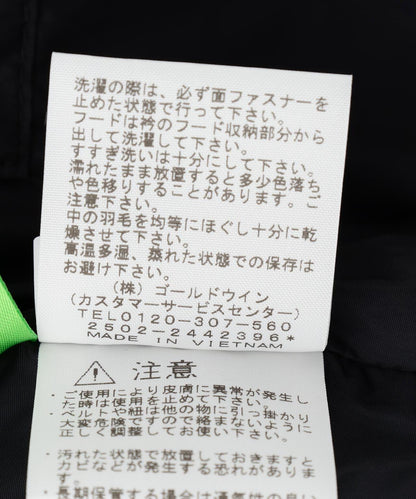 洗濯の際は、必ず面ファスナーを
止めた状態で行って下さい。
フードは衿のフード収納部分から
出して洗濯して下さい。
すすぎ洗いは十分にして下さい。
濡れたまま放置すると多少色落ち
や色移りすることがあります。ご
注意下さい。
中の羽毛を均等にほぐし十分に乾
燥させて下さい。
高温多湿、蒸れた状態での保存は
お避け下さい。
(株) ゴールドウイン
(カスタマーサービスセンター)
TEL0120-307-560
2502-2442396*
MADE IN VIETNAM
注意
・ご使用により皮膚に異常が発生し
た時は使用を止めて下さい。
・ベルトや紐は他の物に引っ掛かり
大変危険ですので絡まないように
正しく調整してお使い下さい。
・汚れた状態で放置しておきますと
カビなどが発生する恐れがありま
す。
・長期保管する場合は通気性の良い